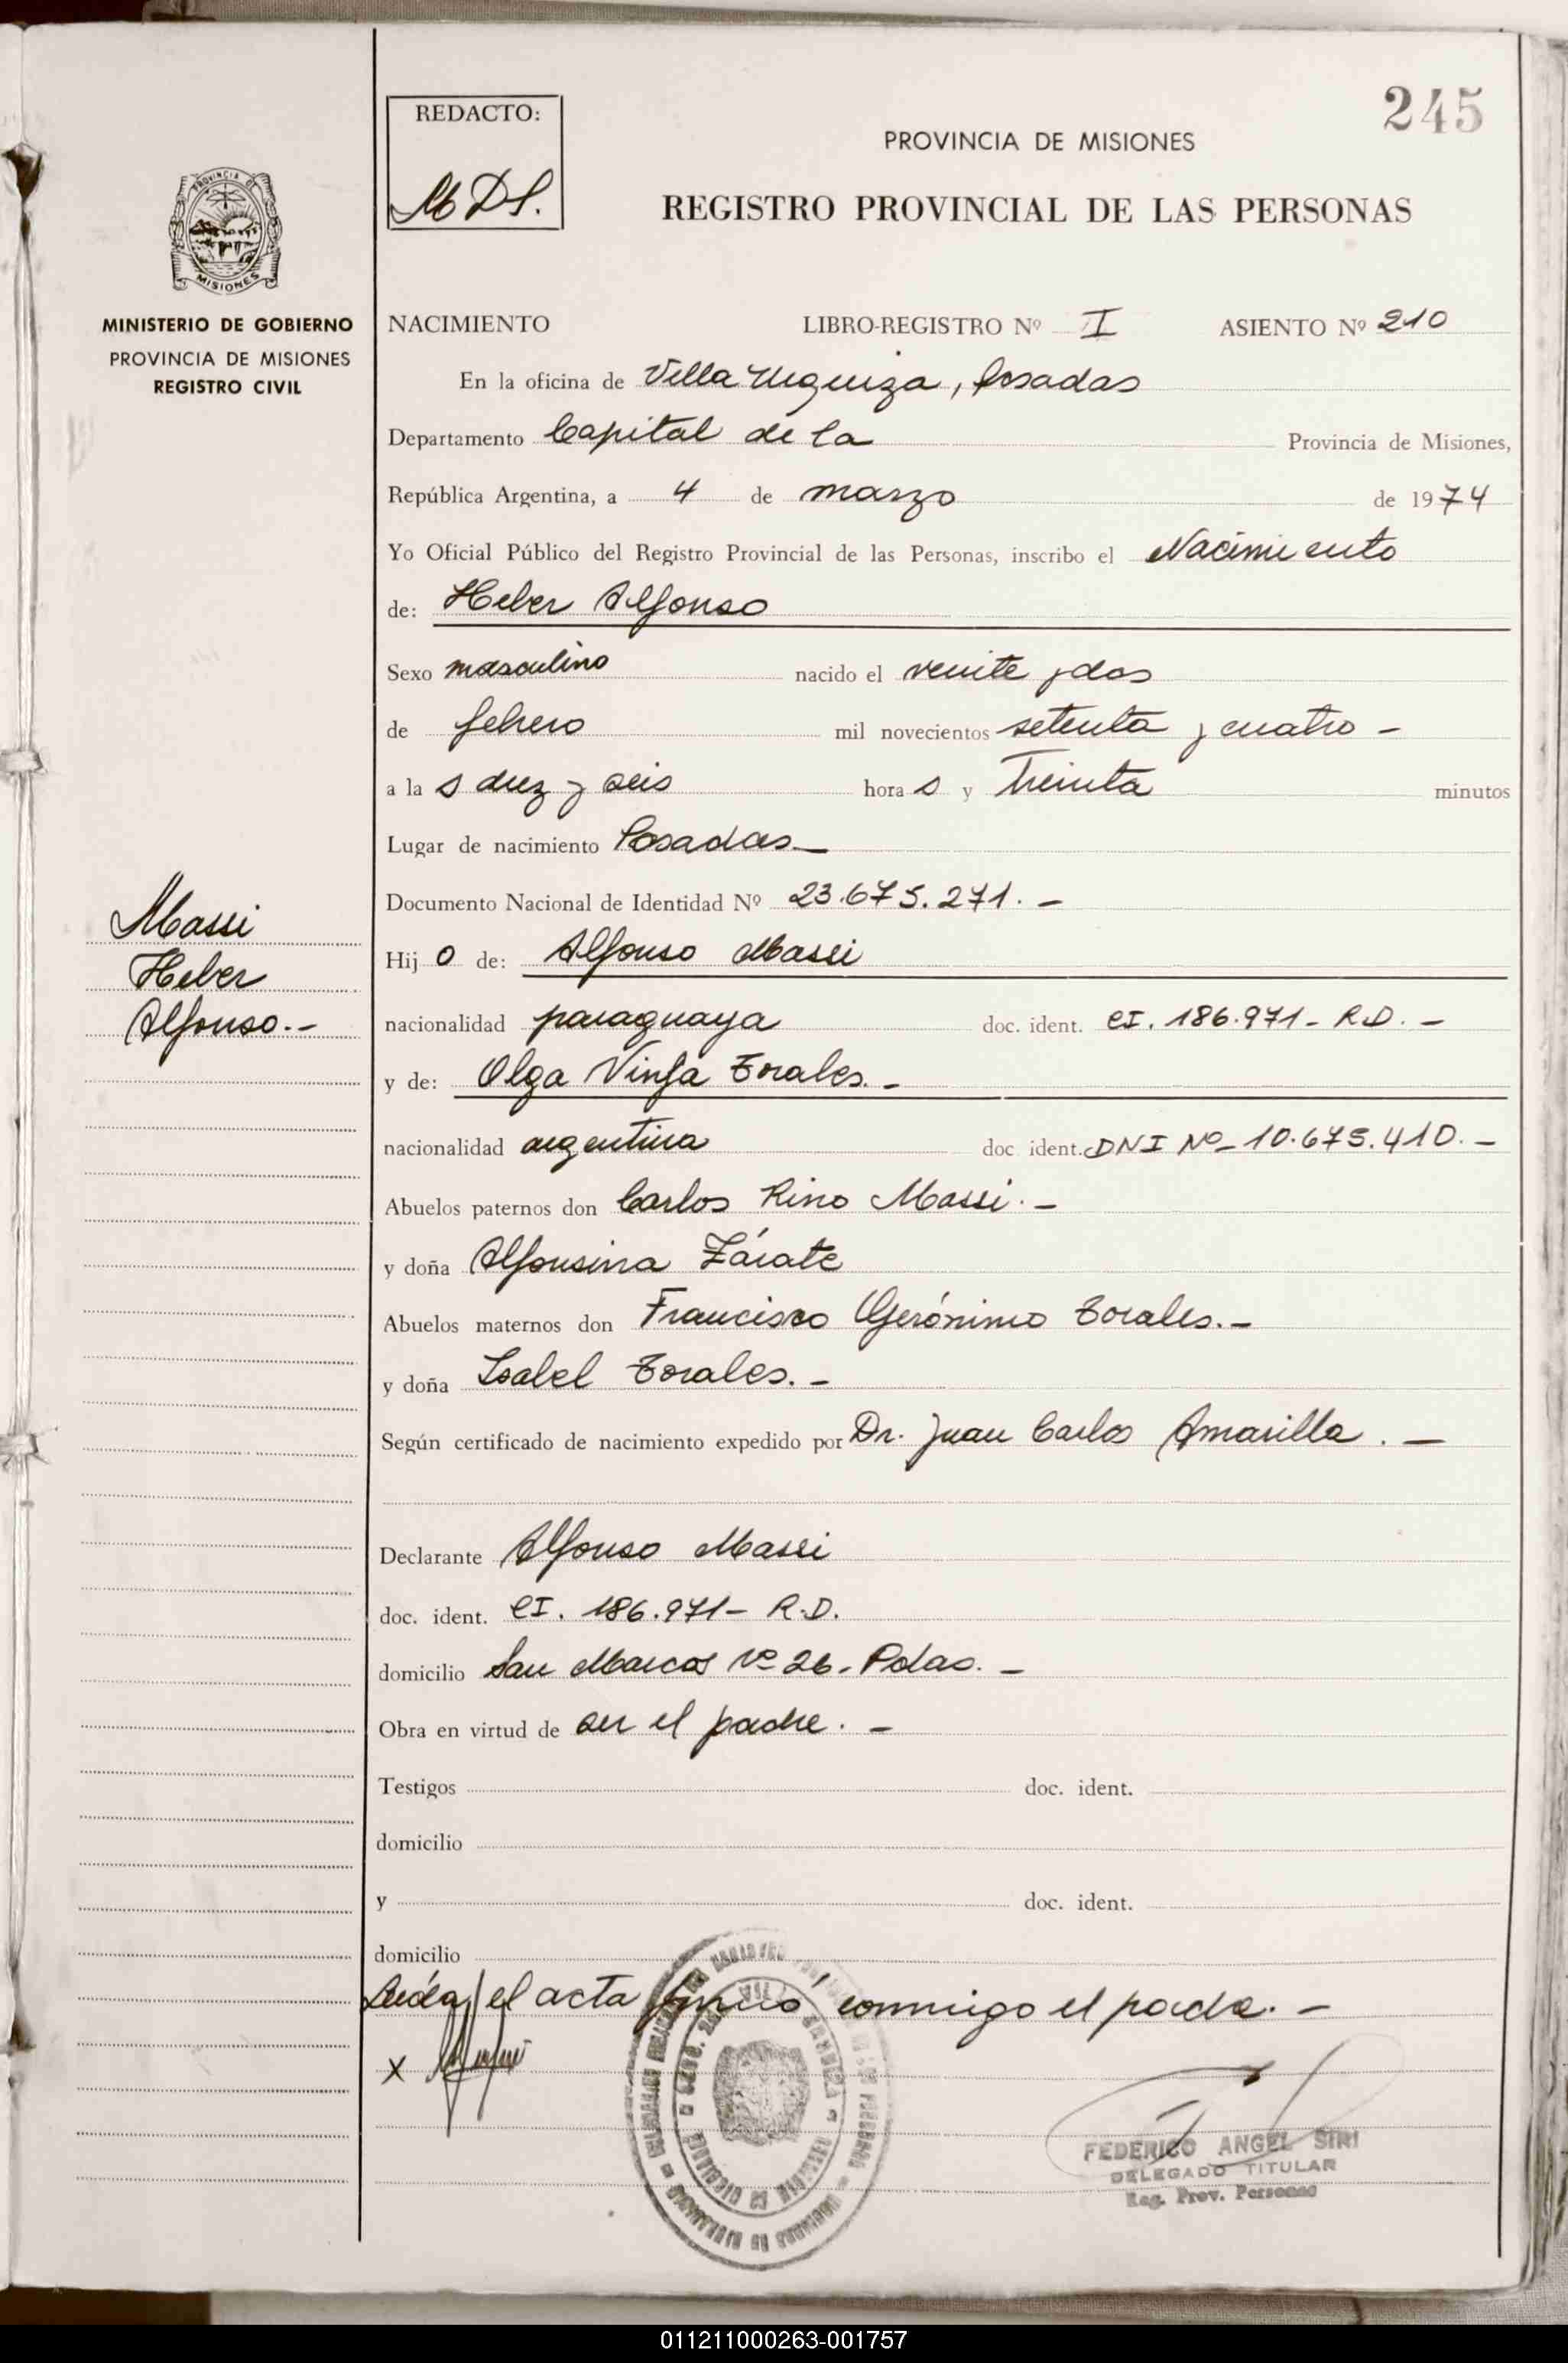 245
REDACTO:
MDS.
PROVINCIA DE MISIONES
REGISTRO PROVINCIAL DE LAS PERSONAS
PROVINCIA DE
MISIONES
MINISTERIO DE GOBIERNO
PROVINCIA DE MISIONES
REGISTRO CIVIL
NACIMIENTO LIBRO-REGISTRO Nº I ASIENTO Nº 210
En la oficina de Villa Urquiza, Posadas
Departamento Capital de la Provincia de Misiones,
República Argentina, a 4 de marzo de 1974
Yo Oficial Público del Registro Provincial de las Personas, inscribo el Nacimiento
de: Heber Alfonso
Sexo masculino nacido el veinte y dos
de febrero mil novecientos setenta y cuatro -
a la s diez y seis hora s y treinta minutos
Lugar de nacimiento Posadas -
Documento Nacional de Identidad Nº 23.675.271. -
Massi
Heber
Alfonso. -
Hij o de: Alfonso Massi
nacionalidad paraguaya doc. ident. CI. 186.971 - R.D. -
y de: Olga Torales. -
nacionalidad argentina doc. ident. DNI Nº - 10.675.410. -
Abuelos paternos don Carlos Rino Massi. -
y doña Alfonsina Zárate
Abuelos maternos don Francisco Gerónimo Torales. -
y doña Isabel Torales. -
Según certificado de nacimiento expedido por Dr. Juan Carlos Amarilla. -
Declarante Alfonso Massi
doc. ident. CI. 186.971 - R.D.
domicilio San Marcos Nº 26 - Pdas. -
Obra en virtud de ser el padre. -
Testigos doc. ident.
domicilio
y doc. ident.
domicilio
Leída el acta firmó conmigo el padre. -
x
FEDERICO ANGEL SIRI
DELEGADO TITULAR
Reg. Prov. Personas
011211000263-001757